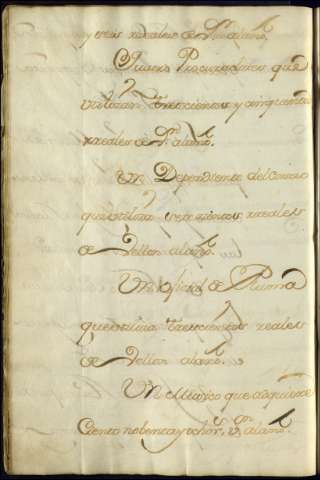 y seis reales de Vn. al año.
Quatro Procuradores que
utilizan trescientos y cinquenta
reales de Vn. al año.
Un Dependiente del Correo
que utiliza reales
de Vellon al año.
Un oficial de Pluma
que utiliza trescientos reales
de Vellon al año.
Un Medico que adquiere
Ciento nobenta y ocho rs. Vn. al año.